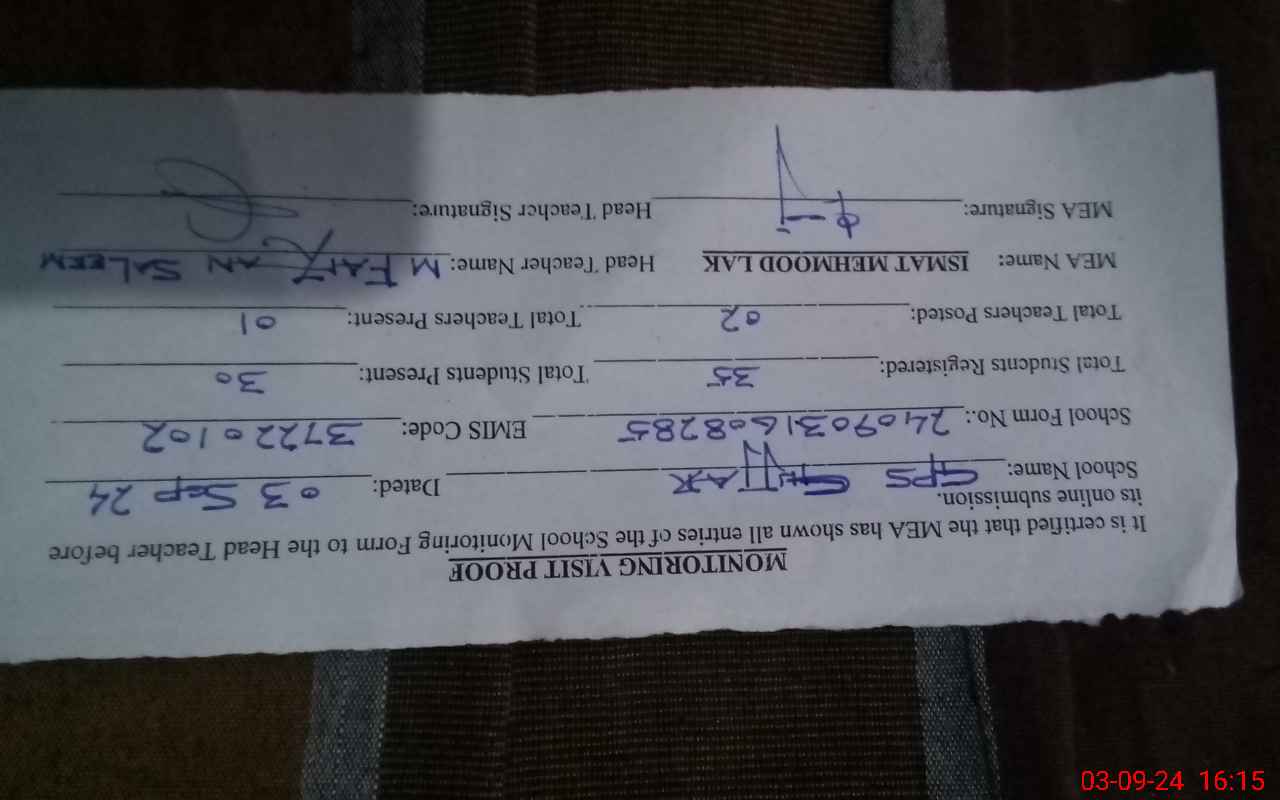 MONITORING VISIT PROOF
It is certified that the MEA has shown all entries of the School Monitoring Form to the Head Teacher before
its online submission.
School Name: GPS Dated: 03 Sep 24
School Form No.: 2409031608285 EMIS Code: 37220102
Total Students Registered: 35 Total Students Present: 30
Total Teachers Posted: 02 Total Teachers Present: 01
MEA Name: ISMAT MEHMOOD LAK Head Teacher Name: M FAIZAN SALEEM
MEA Signature: Head Teacher Signature:
03-09-24 16:15